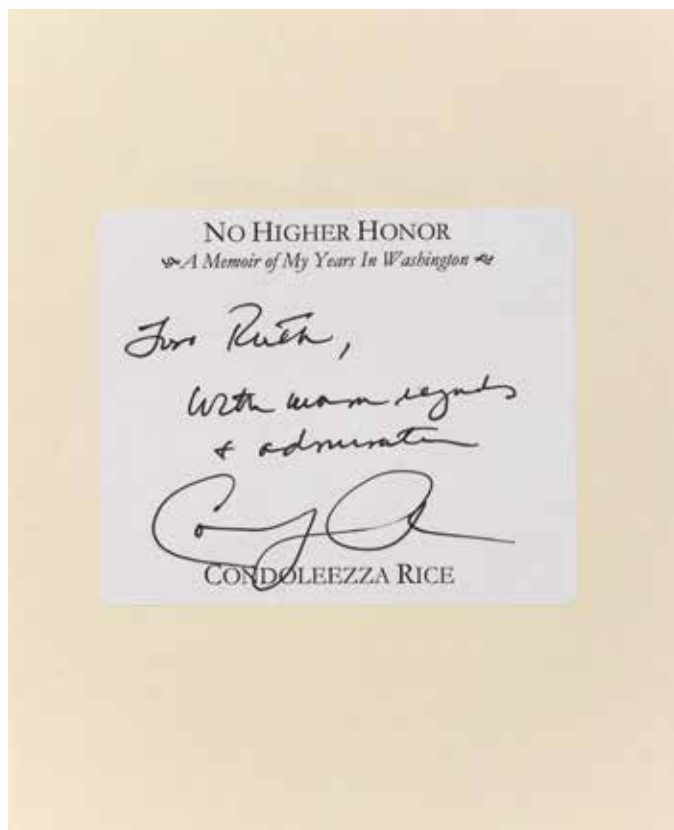 NO HIGHER HONOR
A Memoir of My Years In Washington
For Ruth,
With warm regards
+ admiration
CONDOLEEZZA RICE